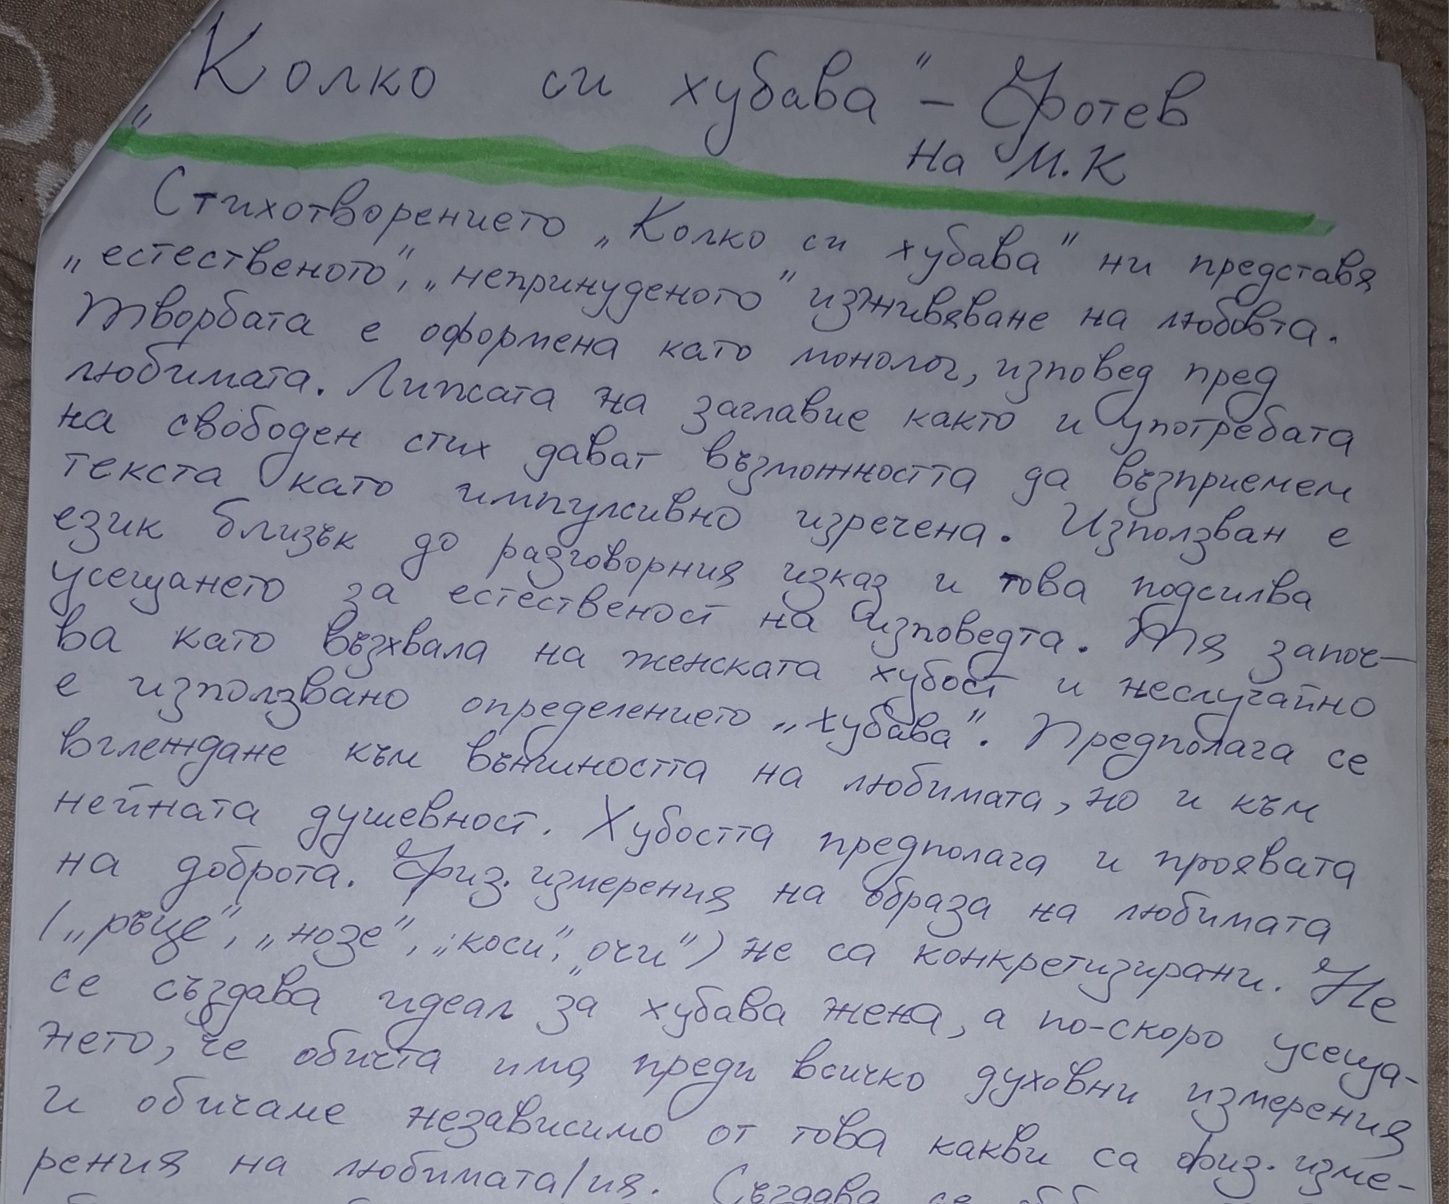 „Колко си хубава" – Фотев
на М.К
Стихотворението „Колко си хубава" ни представя
„естественото", „непринуденото" изживяване на любовта.
Творбата е оформена като монолог, изповед пред
любимата. Липсата на заглавие както и употребата
на свободен стих дават възможността да възприемем
текста като импулсивно изречена. Използван е
език близък до разговорния изказ и това подсилва
усещането за естественост на изповедта. Тя започ-
ва като възхвала на женската хубост и неслучайно
е използвано определението „хубава". Предполага се
вглеждане към външността на любимата, но и към
нейната душевност. Хубостта предполага и проявата
на доброта. Физ. измерения на образа на любимата
(„ръце", „нозе", „коси", „очи") не са конкретизирани. Не
се създава идеал за хубава жена, а по-скоро усеща-
нето, че обичта има преди всичко духовни измерения
и обичаме независимо от това какви са физ. изме-
рения на любимата/ия. Създава се